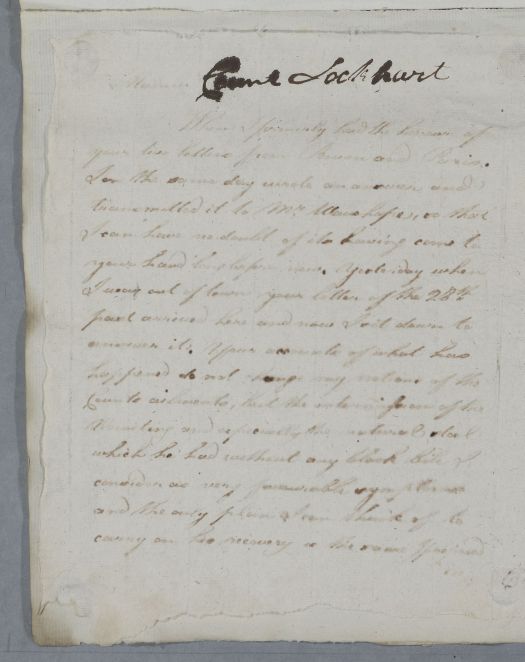 Madam Count Lockhart
When I formerly had the honour of
your two letters from and Paris.
I on the same day wrote an answer and
transmitted it to Mr Wauchope, so that
I can have no doubt of its having come to
your hand long before now. Yesterday when
I was out of town your letter of the 28th
past arrived here and now I sit down to
answer it. Your accounts of what has
happened do not change my notions of the
Counts ailments, but the intermission of his
Vomiting and especially the natural stool
which he had without any black bile I
consider as very favourable symptoms
and the only plan I can think of to
carry on his recovery is the same I proposed